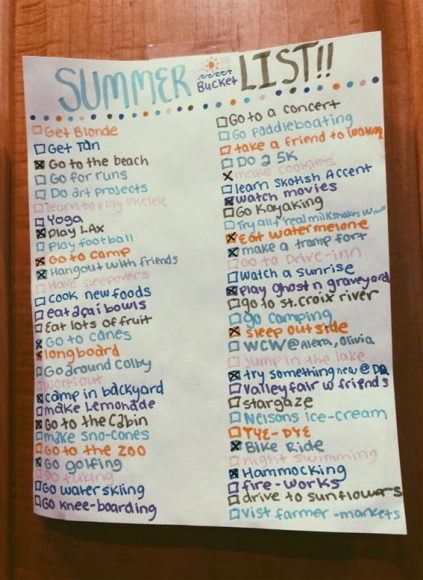 SUMMER
Bucket
LIST!!
Get Blonde
Get Tan
Go to the beach
Go for runs
Do art projects
learn to play ukelele
Yoga
Play LAX
Play football
Go to camp
Hangout with friends
Have sleepovers
Cook new foods
eat açai bowls
Eat lots of fruit
Go to canes
longboard
Go around colby
workout
camp in backyard
make Lemonade
Go to the cabin
make sno-cones
Go to the zoo
Go golfing
go tubing
Go water skiing
Go knee-boarding
Go to a concert
Go paddleboating
take a friend to
Do a 5K
make cookies
learn Skotish Accent
watch movies
Go Kayaking
Try all f real milkshakes
Eat watermelone
make a tramp fort
Go to Drive-inn
Watch a sunrise
Play ghost n graveyard
go to st. croix river
go camping
sleep outside
WCW@Alera, Olivia
jump in the lake
try something new @DQ
Valleyfair w friends
stargaze
Nelsons ice-cream
TYE-DYE
Bike Ride
night swimming
Hammocking
fire-works
drive to sunflowers
Vist farmer-markets